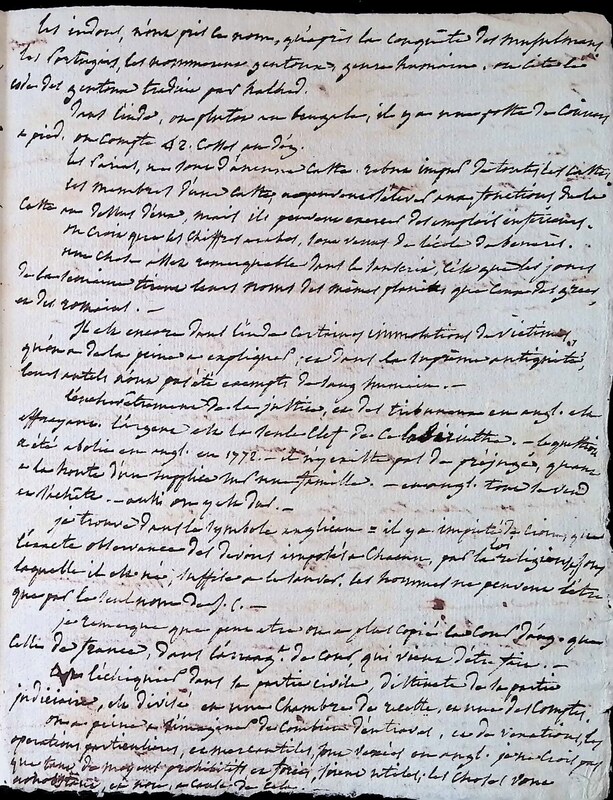 les indous, n'ont pris ce nom, qu'après la conquête des musulmans
les Portugais, les nommerent gentoux, genre humain. on cite le
code des gentoux traduit par halhed.
Dans l'inde, ou plutot au bengale, il y a une poste de Coureurs
a pied. on Compte 42. Cosses au deg.
les Parias, ne sont d'aucune Caste. rebut impur de toutes les Castes
les membres d'une Caste, ne peuvent s'élever aux fonctions de la
Caste au dessus d'eux, mais ils peuvent exercer des emplois inférieurs.
on Croit que les Chiffres arabes, sont venus de l'école de benarès.
une Chose assez remarquable dans le Sanscrit, C'est que les jours
de la semaine tirent leurs noms des mêmes planètes que Ceux des grecs,
et des romains. —
Il est encore dans l'inde Certaines immolations de victimes,
qu'on a de la peine a expliquer, et dans la suprême antiquité,
leurs autels n'ont pas été exempts de sang humain. —
l'enchevêtrement de la justice, et des tribunaux en angl. est
effrayant. l'argent est la seule Clef de Ce labirinthe. — la question
a été abolie en angl. en 1772 — il n'y existe pas de préjugé, quant
a la honte d'un supplice sur une famille. — en angl. tout se vend
et s'achète. — aussi on y est dur. —
je trouve dans le symbole anglican = il y a impiété de Croire, que
l'exacte observance des devoirs imposés a Chacun, par la religion dans
laquelle il est né, suffise a le sauver, les hommes ne peuvent l'être
que par le seul nom de J. C. —
je remarque que peut etre on a plus copié la Cour d'ang. que
Celle de france, dans l'arrang.t de Cour, qui vient d'être fait. —
l'échiquier dans sa partie civile distincte de la partie
judiciaire, est divisé en une Chambre de recette, et une des Comptes.
on a peine a s'imaginer de Combien d'entraves, et de vexations, les
operations particulieres, et mercantiles, sont vexées en angl. je ne Crois pas
que tant de moyens prohibitifs et forcés, soient utiles, les Choses vont
nonobstant, et non, a Cause de Cela.